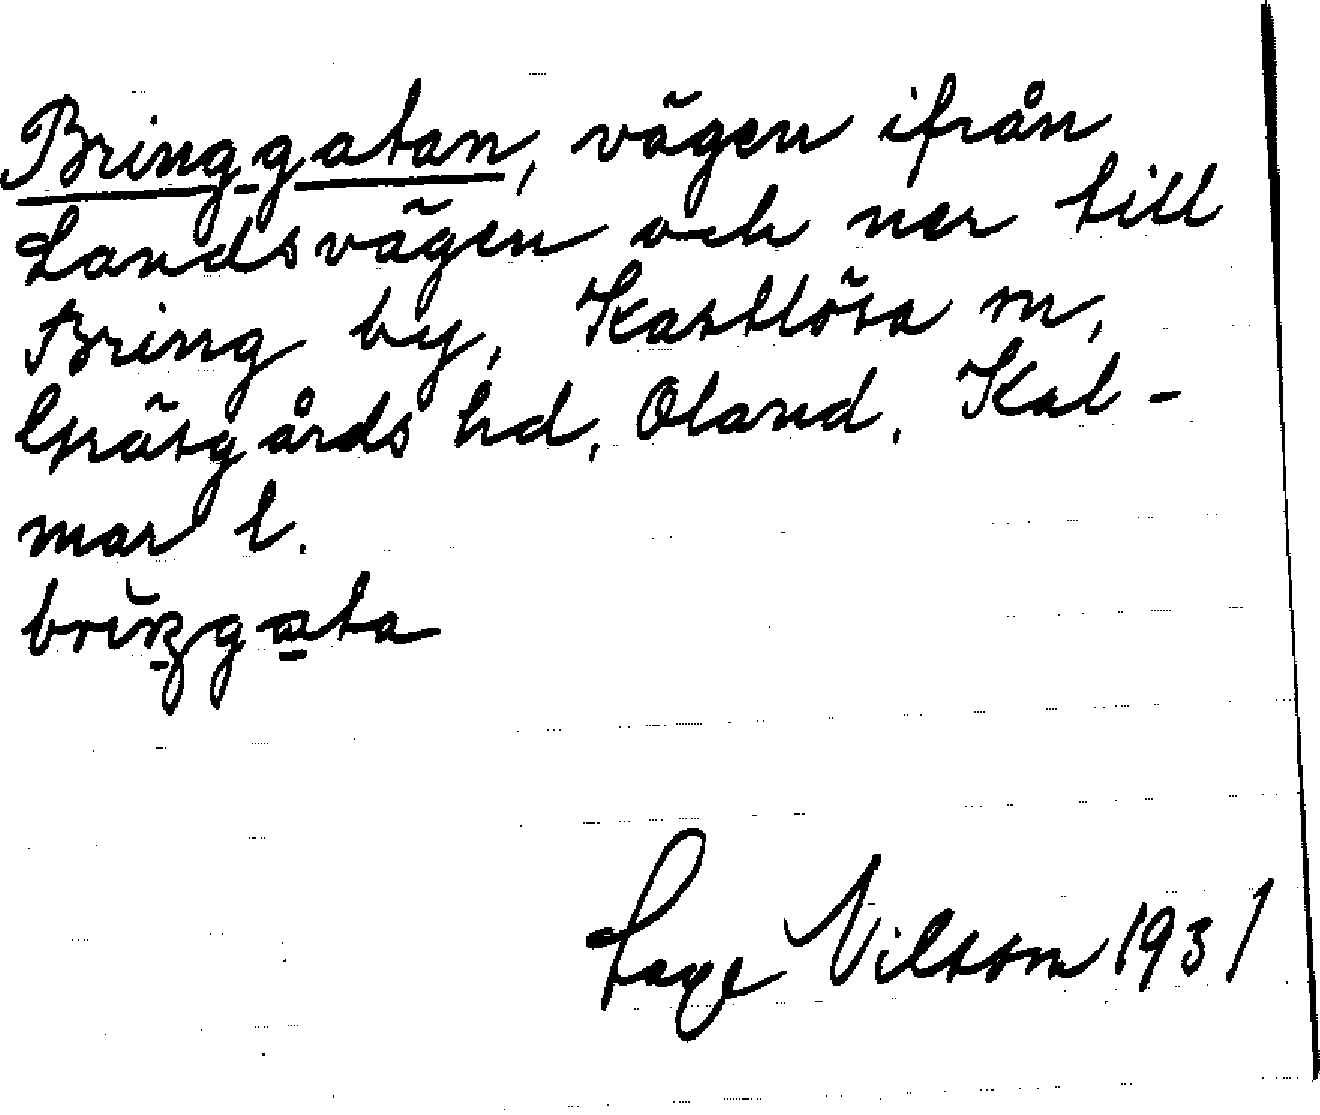 Bringgatan, vägen ifrån
Landsvägen och ner till
Bring by, Kastlösa sn,
Gräsgårds hd, Öland. Kal-
mar l.
Nilsson 1931